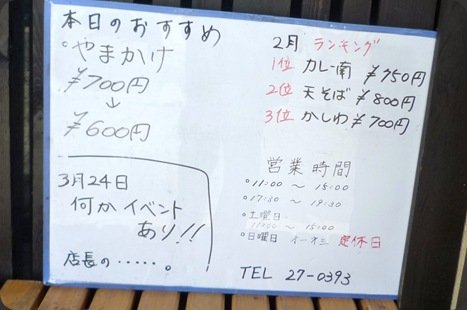 本日のおすすめ
○やまかけ
¥700円
↓
¥600円
3月24日
何かイベント
あり!!
店長の・・・・・。
2月 ランキング
1位 カレー南 ¥750円
2位 天そば ¥800円
3位 かしわ ¥700円
営業時間
○11:00 〜 15:00
○17:30 〜 19:30
○土曜日
11:00 〜 15:00
○日曜日 定休日
TEL 27-0393